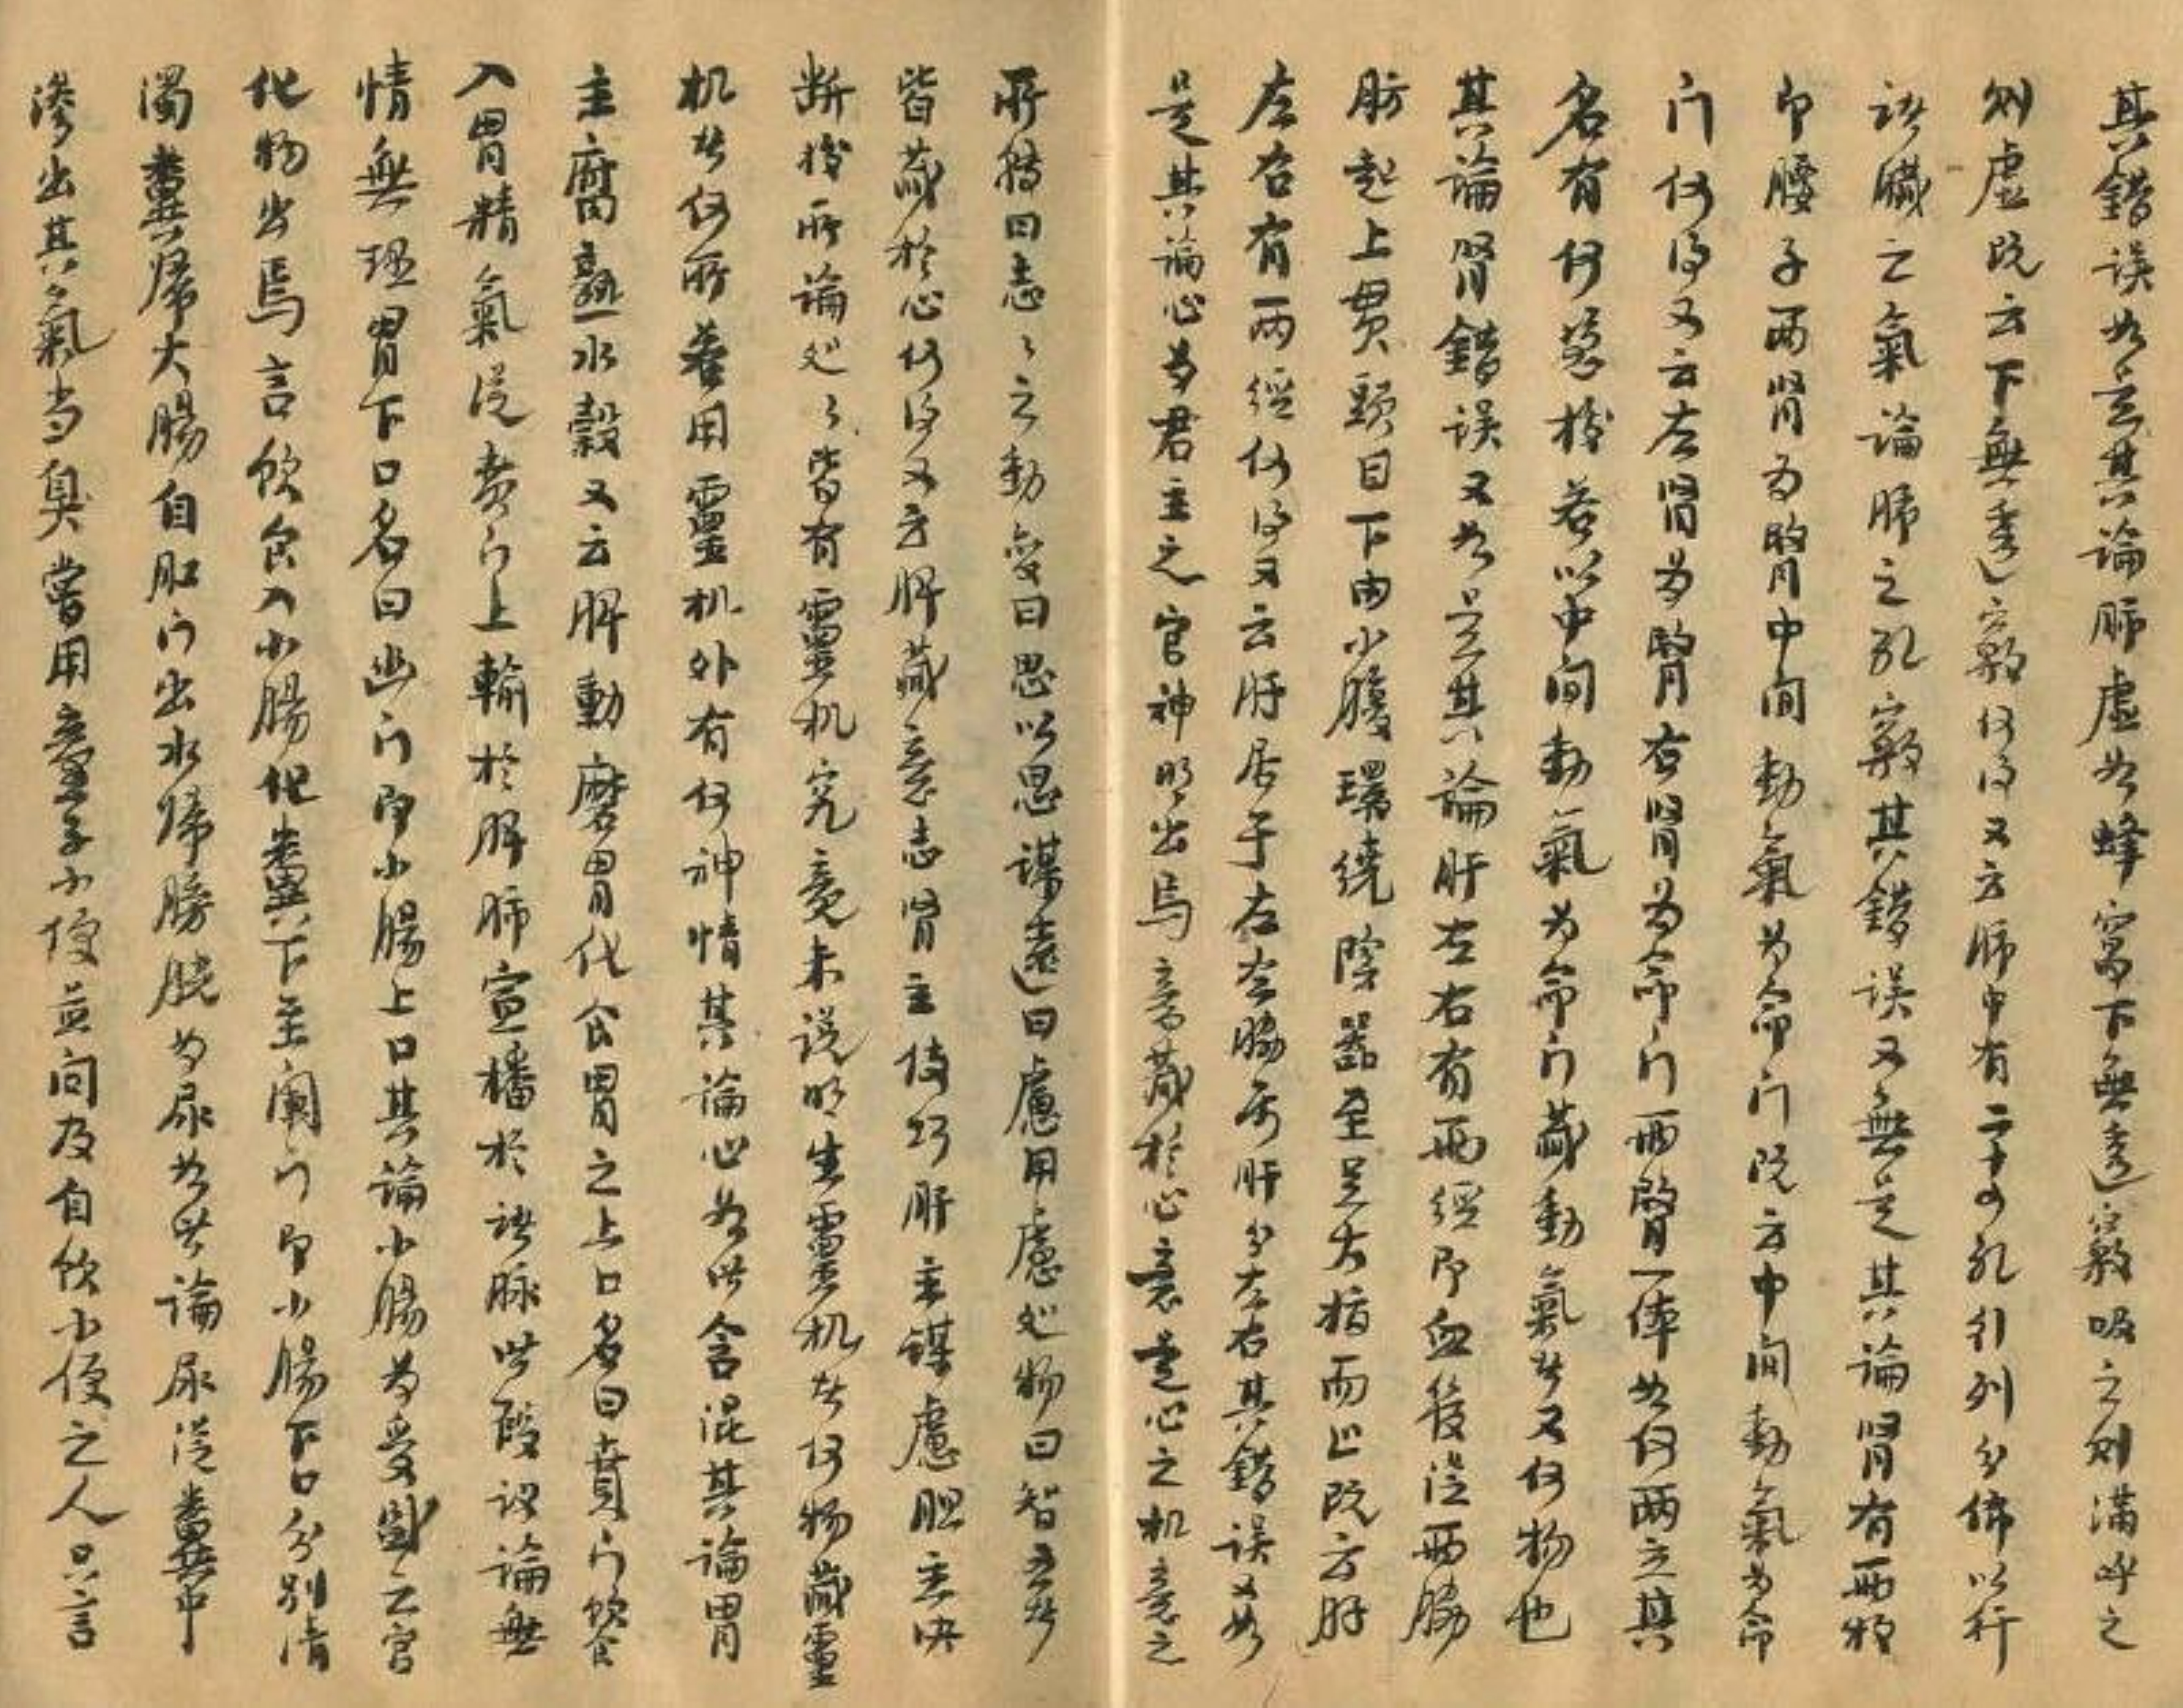 其錯誤如言其論肺虛如蜂窩下無透竅吸之則滿呼之
則虛既云下無透竅何得又云肺中有二十四孔行列分佈以行
諸臟之氣論肺之孔竅其錯誤又無是其論腎有兩枚
即腰子兩腎為腎中间動氣為命门既云中间動氣為命
门何得又云左腎為腎右腎為命门兩腎一体如何兩立其
名有何憑㨿若以中间動氣為命门藏動氣者又何物也
其論腎錯誤又如是其論肝左右有兩經即血管從兩脇
肋起上贯頭目下由小腹環繞陰器至足大指而止既云肝
左右有兩經何得又云肝居于左左脇属肝分左右其錯誤又如
是其論心為君主之官神明出焉意藏於心意是心之机意之
所持曰志志之動变曰思以思謀遠曰慮用慮処物曰智五者
皆藏於心何得又云脾藏意志腎主伎巧肝主謀慮胆主决
断㨿所論処処皆有靈机究竟未说明生靈机者何物藏靈
机者何所若用靈机外有何神情其論心如此含混其論胃
主腐熟水穀又云脾動磨胃化食胃之上口名曰賁门飲食
入胃精氣從賁门上輸於脾肺宣播於诸脉此段议論無
情無理胃下口名曰幽门即小腸上口其論小腸為受盛之官
化物出焉言飲食入小腸化糞下至闌门即小腸下口分别清
濁糞歸大腸自肛门出水歸膀胱為尿如此論尿從糞中
滲出其氣当臭嘗用童子小便並问及自飲小便之人只言